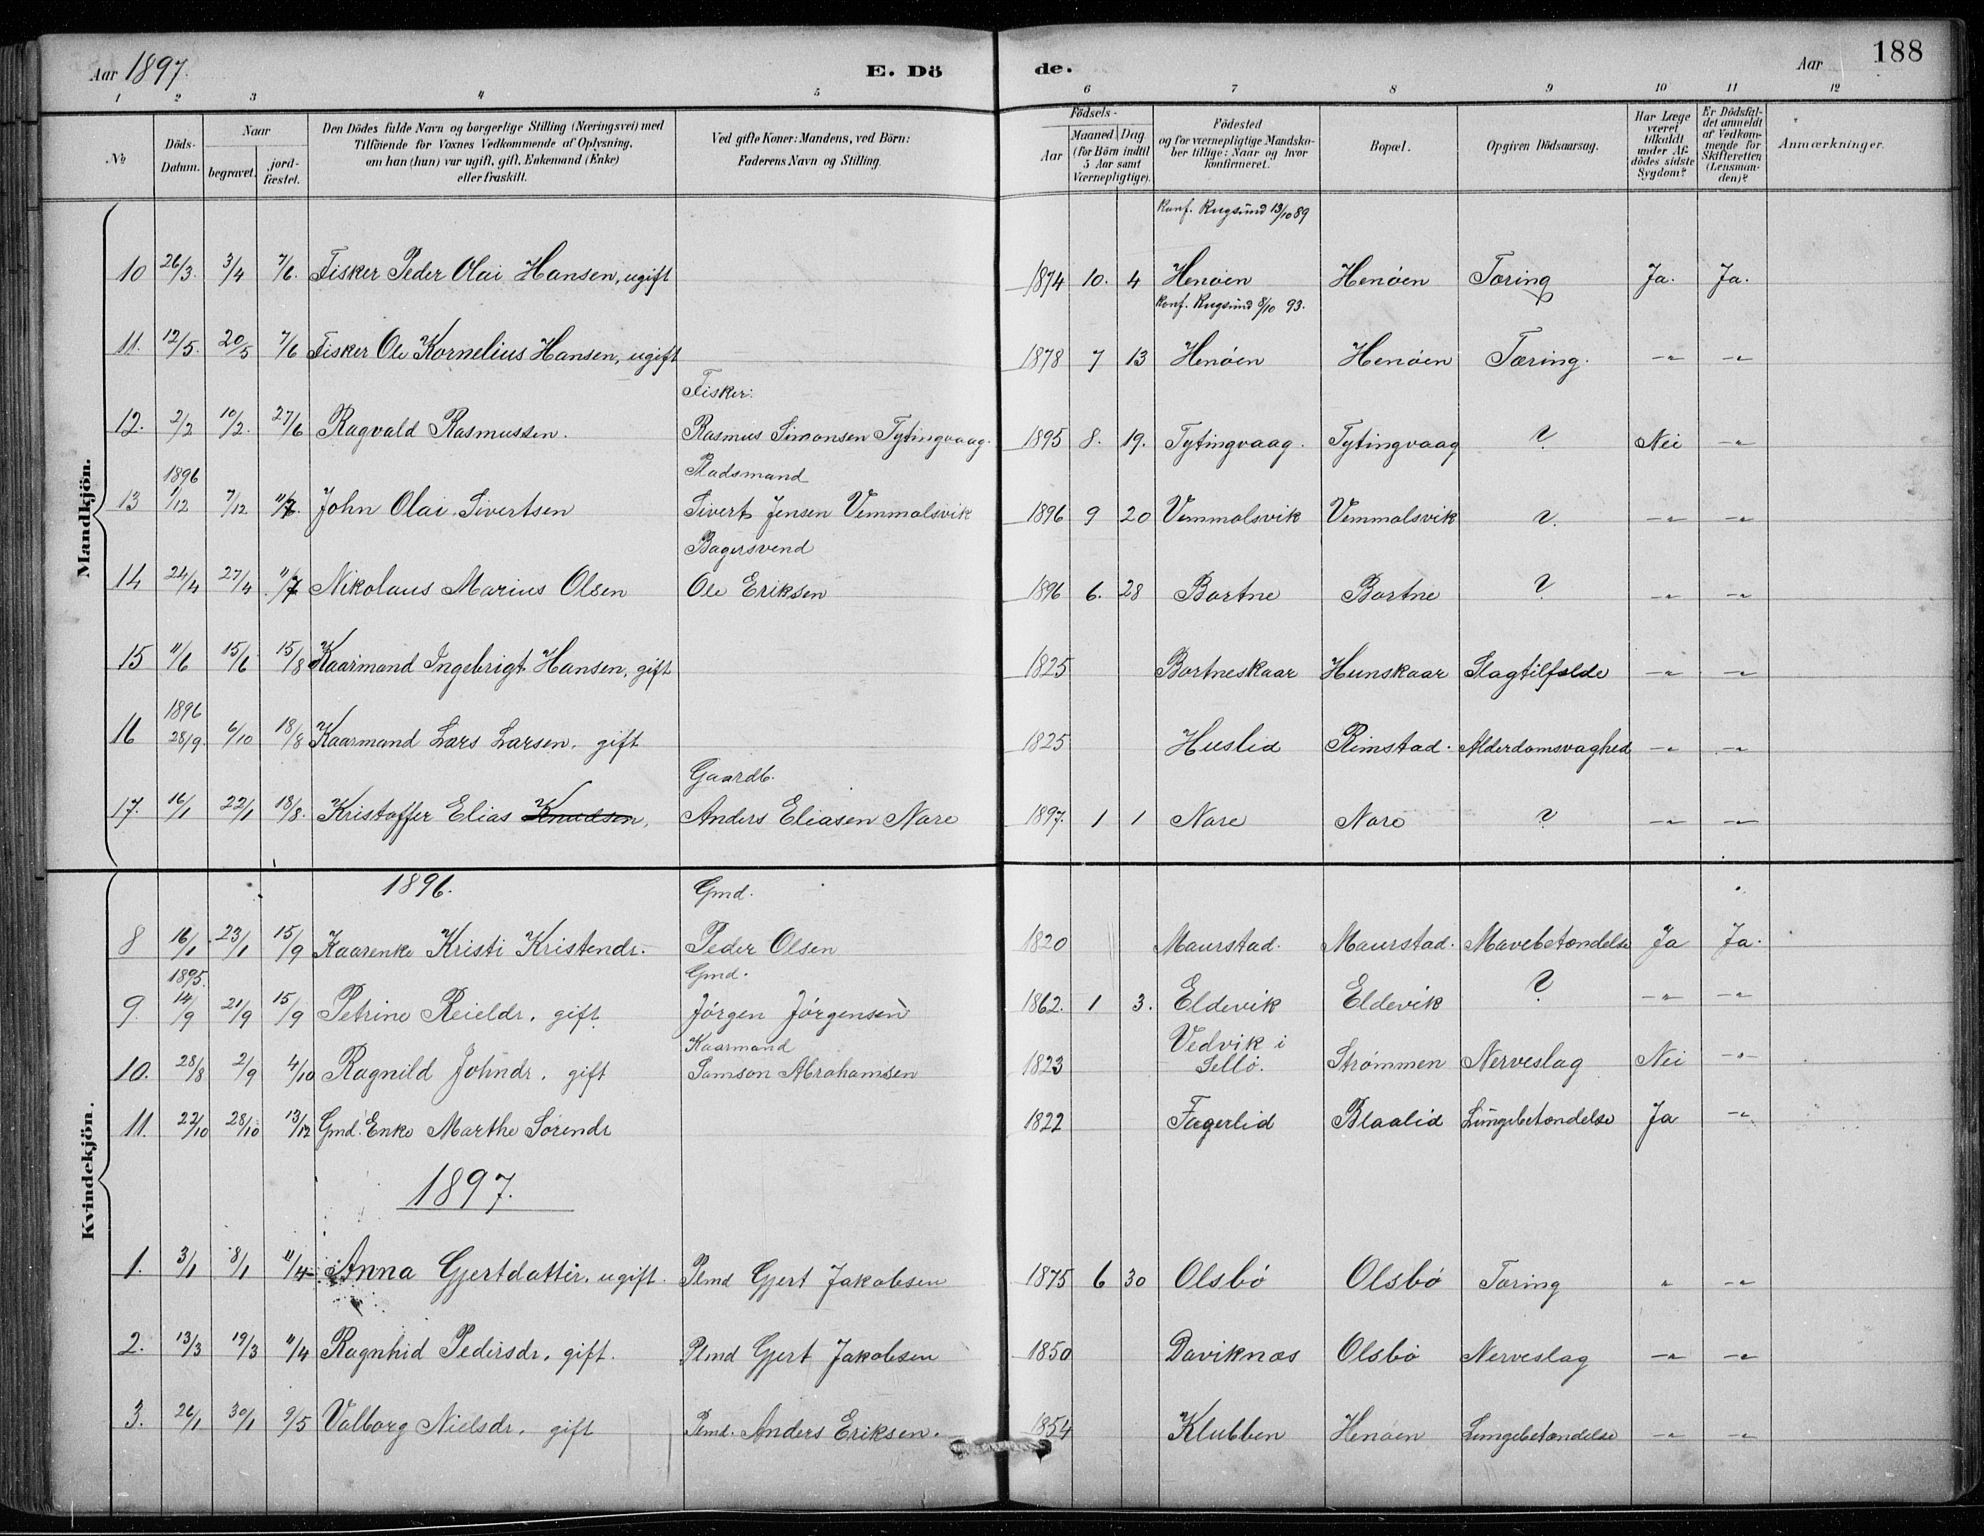 Aar 1897. E. Dö de. Aar 188
1 2 3 4 5 6 7 8 9 10 11 12
No
Döds-Datum.
Naar
begravet.
jordfæstet.
Den Dödes fulde Navn og borgerlige Stilling (Næringsvei) med
Tilföiende for Voxnes Vedkommende af Oplysning,
om han (hun) var ugift, gift, Enkemand (Enke)
eller fraskilt.
Ved gifte Koner: Mandens, ved Börn:
Faderens Navn og Stilling.
Födsels-
Aar
Maaned Dag
(for Börn indtil
5 Aar samt
Værnepligtige).
Födested
og for værnepligtige Mandskaber tillige: Naar og hvor
konfirmeret.
Bopæl.
Opgiven Dödsaarsag.
Har Læge været tilkaldt under Afdödes sidste Sygdom?
Er Dödsfaldet anmeldt af Vedkommende for Skifteretten (Lensmanden)?
Anmærkninger.
Mandkjön.
Konf. Rugsund 13/10 89
10 26/3. 3/4 7/6. Fisker Peder Olai Hansen, ugift 1874 10. 4 Henøen Henøen Tæring Ja. Ja.
Konf. Rugsund 8/10 93.
11. 12/5. 20/5 7/6 Fisker Ole Kornelius Hansen, ugift 1878 7 13 Henøen Henøen Tæring. -"- -"-
Fisker:
12. 2/2 10/2. 27/6 Ragvald Rasmussen. Rasmus Simonsen Tytingvaag. 1895 8. 19. Tytingvaag. Tytingvaag ? Nei -"-
1896 Pladsmand
13 1/12 7/12 11/7. John Olai Sivertsen Sivert Jensen Vemmelsvik 1896 9 20 Vemmelsvik Vemmelsvik ? -"- -"-
Bagersvend
14 24/4 27/4 11/7 Nikolaus Marius Olsen Ole Eriksen 1896 6. 28 Bortne Bortne ? -"- -"-
15 11/6 15/6 15/8 Kaarmand Ingebrigt Hansen, gift 1825 Bortneskaar Hunskaar Slagtilfælde -"- -"-
1896
16 28/9. 6/10 18/8 Kaarmand Lars Larsen. gift 1825 Huslid Rimstad. Alderdomsvaghed -"- -"-
Gaardb.
17. 16/1 22/1 18/8. Kristoffer Elias Knudsen, Anders Eliasen Nore 1897. 1 1 Nore Nore ? -"- -"-
Kvindekjön.
1896. Gmd.
8 16/1 23/1 15/9 Kaarenke Kristi Kristendr. Peder Olsen 1820 Maurstad. Maurstad. Mavebetændelse Ja Ja.
1895. Gmd.
9. 14/9 21/9 15/9 Petrine Reieldr. gift Jörgen Jörgensen 1862. 1 3. Eldevik Eldevik ? -"- -"-
Kaarmand Vedvik i
10. 28/8 2/9 4/10 Ragnild Johndr. gift Samson Abrahamsen 1823 Sellö. Strømmen Nerveslag Nei -"-
11. 22/10 28/10 13/12 Gmd. Enke Marthe Sørendr 1822 Fagerlid Blaalid Lungebetændelse Ja -"-
1897.
1. 3/1 8/1 11/4 Anna Gjertdatter, ugift. Plmd Gjert Jakobsen 1875 6 30 Olsbö Olsbö Tæring " -"-
2. 13/3 19/3 11/4 Ragnhid Pedersdr. gift. Plmd Gjert Jakobsen 1850 Daviknæs Olsbö Nerveslag -"- -"-
3. 26/1 30/1 9/5 Valborg Nielsdr. gift Plmd. Anders Eriksen. 1854 Klubben Henøen Lungebetændelse -"- -"-